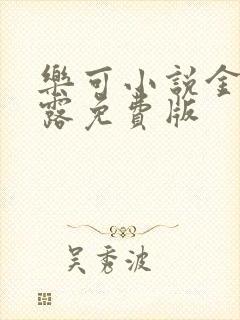 樂可小說金
露免費版
吴秀波